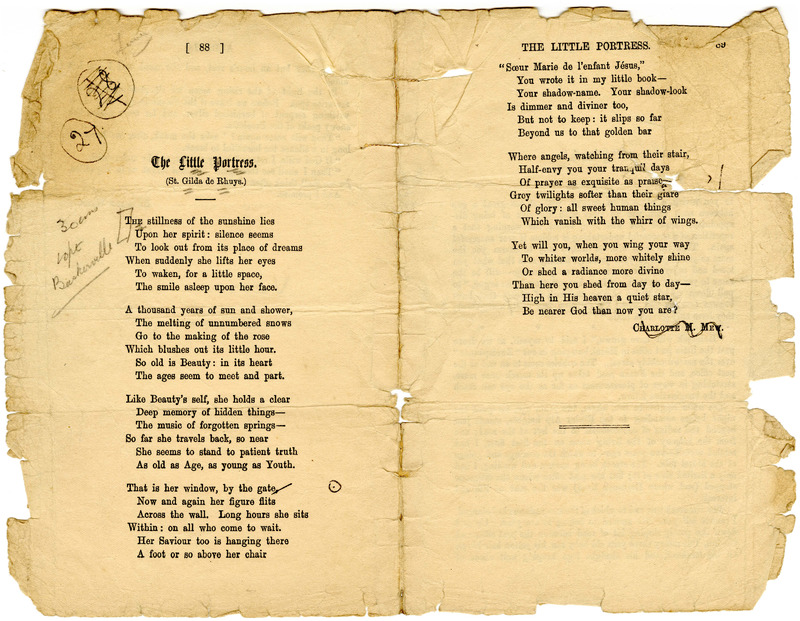 [ 88 ]
27
The Little Portress.
(St. Gilda de Rhuys.)
30 ems
10pt
Baskerville
THE stillness of the sunshine lies
Upon her spirit: silence seems
To look out from its place of dreams
When suddenly she lifts her eyes
To waken, for a little space,
The smile asleep upon her face.
A thousand years of sun and shower,
The melting of unnumbered snows
Go to the making of the rose
Which blushes out its little hour.
So old is Beauty: in its heart
The ages seem to meet and part.
Like Beauty's self, she holds a clear
Deep memory of hidden things—
The music of forgotten springs—
So far she travels back, so near
She seems to stand to patient truth
As old as Age, as young as Youth.
That is her window, by the gate,
Now and again her figure flits
Across the wall. Long hours she sits
Within: on all who come to wait.
Her Saviour too is hanging there
A foot or so above her chair
THE LITTLE PORTRESS. 89
"Sœur Marie de l'enfant Jésus,"
You wrote it in my little book—
Your shadow-name. Your shadow-look
Is dimmer and diviner too,
But not to keep: it slips so far
Beyond us to that golden bar
Where angels, watching from their stair,
Half-envy you your tranquil days
Of prayer as exquisite as praise—
Grey twilights softer than their glare
Of glory: all sweet human things
Which vanish with the whirr of wings.
Yet will you, when you wing your way
To whiter worlds, more whitely shine
Or shed a radiance more divine
Than here you shed from day to day—
High in His heaven a quiet star,
Be nearer God than now you are?
CHARLOTTE M. MEW.